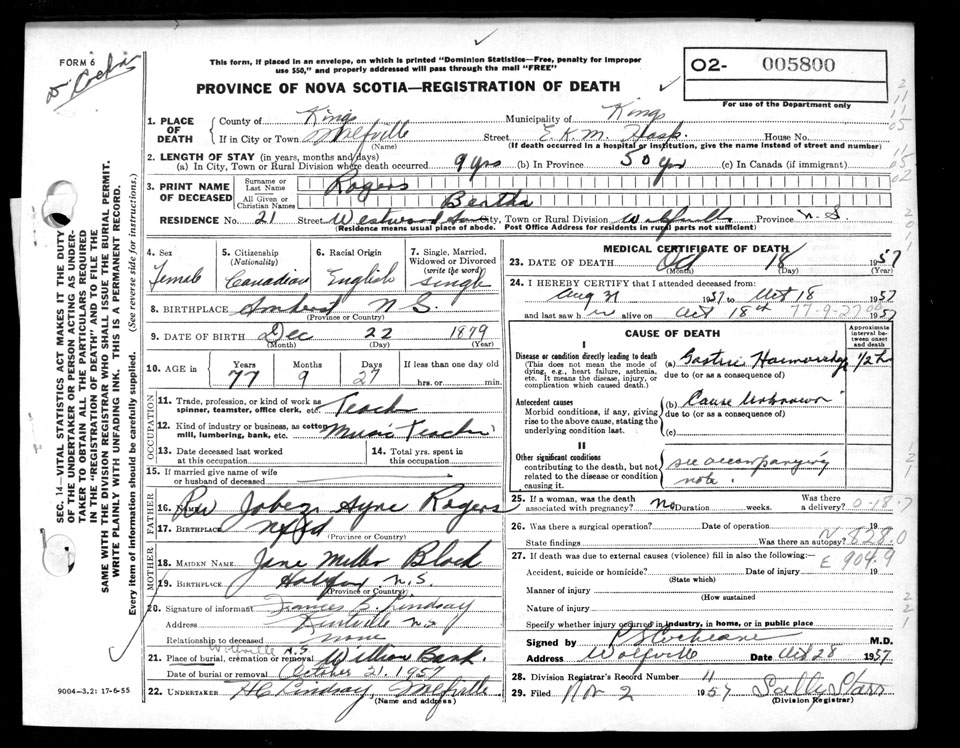 FORM 6
Dr Cochran
This form, if placed in an envelope, on which is printed "Dominion Statistics—Free, penalty for improper
use $50," and properly addressed will pass through the mail "FREE"
PROVINCE OF NOVA SCOTIA—REGISTRATION OF DEATH
O2- 005800
For use of the Department only
1. PLACE OF DEATH
County of Kings Municipality of Kings
If in City or Town Wolfville Street E.K.M. Hosp. House No.
(Name) (If death occurred in a hospital or institution, give the name instead of street and number)
2. LENGTH OF STAY (in years, months and days)
(a) In City, Town or Rural Division where death occurred 9 yrs (b) In Province 50 yrs (c) In Canada (if immigrant)
3. PRINT NAME OF DECEASED
Surname or Last Name Rogers
All Given or Christian Names Bertha
RESIDENCE No. 21 Street Westwood City, Town or Rural Division Wolfville Province N.S.
(Residence means usual place of abode. Post Office Address for residents in rural parts not sufficient)
4. Sex
Female
5. Citizenship
(Nationality)
Canadian
6. Racial Origin
English
7. Single, Married,
Widowed or Divorced
(write the word)
Single
8. BIRTHPLACE Amherst N.S.
(Province or Country)
9. DATE OF BIRTH Dec 22 1879
(Month) (Day) (Year)
10. AGE in Years Months Days If less than one day old
77 9 27 hrs. or min.
OCCUPATION
11. Trade, profession, or kind of work as
spinner, teamster, office clerk, etc. Teach
12. Kind of industry or business, as cotton
mill, lumbering, bank, etc. Music Teacher
13. Date deceased last worked
at this occupation
14. Total yrs. spent in
this occupation
15. If married give name of wife
or husband of deceased
FATHER
16. NAME Rev Jabez Ayre Rogers
17. BIRTHPLACE Nfld
(Province or Country)
MOTHER
18. MAIDEN NAME Jane Miller Black
19. BIRTHPLACE Halifax N.S.
(Province or Country)
20. Signature of informant Frances B. Lindsay
Address Kentville N.S.
Relationship to deceased none
Wolfville N.S.
21. Place of burial, cremation or removal Willow Bank.
Date of burial or removal October 21. 1957
22. UNDERTAKER H C Lindsay, Wolfville
(Name and address)
9004—3.2: 17-6-55
SEC. 14—VITAL STATISTICS ACT MAKES IT THE DUTY
OF THE UNDERTAKER OR PERSON ACTING AS UNDER-
TAKER TO OBTAIN ALL THE PARTICULARS REQUIRED
IN THE "REGISTRATION OF DEATH" AND TO FILE THE
SAME WITH THE DIVISION REGISTRAR WHO SHALL ISSUE THE BURIAL PERMIT.
WRITE PLAINLY WITH UNFADING INK. THIS IS A PERMANENT RECORD.
Every item of information should be carefully supplied. (See reverse side for instructions.)
MEDICAL CERTIFICATE OF DEATH
23. DATE OF DEATH Oct 18 1957
(Month) (Day) (Year)
24. I HEREBY CERTIFY that I attended deceased from:
Aug 31 1957 to Oct 18 1957
and last saw h er alive on Oct 18th 1957
77-9-27
CAUSE OF DEATH
Approximate
interval be-
tween onset
and death
I
Disease or condition directly leading to death
(This does not mean the mode of
dying, e.g., heart failure, asthenia,
etc. It means the disease, injury, or
complication which caused death.)
(a) Gastric Haemorrhage 1/2 h
due to (or as a consequence of)
Antecedent causes
Morbid conditions, if any, giving
rise to the above cause, stating the
underlying condition last.
(b) Cause Unknown
due to (or as a consequence of)
(c)
II
Other significant conditions
contributing to the death, but not
related to the disease or condition
causing it.
see accompanying
note.
25. If a woman, was the death
associated with pregnancy? No Duration weeks. Was there
a delivery?
0-18.7
26. Was there a surgical operation? Date of operation 19
State findings Was there an autopsy?
N 828.0
27. If death was due to external causes (violence) fill in also the following:
E 904.9
Accident, suicide or homicide? Date of injury 19
(State which)
Manner of injury
(How sustained
Nature of injury
Specify whether injury occurred in industry, in home, or in public place
Signed by P S Cochrane M.D.
Address Wolfville Date Oct 28 1957
28. Division Registrar's Record Number 11
29. Filed Nov 2 1957 Sally Starr
(Division Registrar)